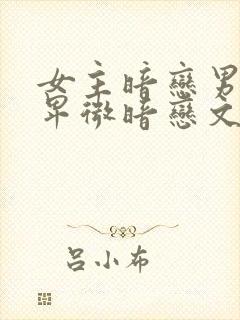 女主暗戀男
卑微暗戀文
吕小布